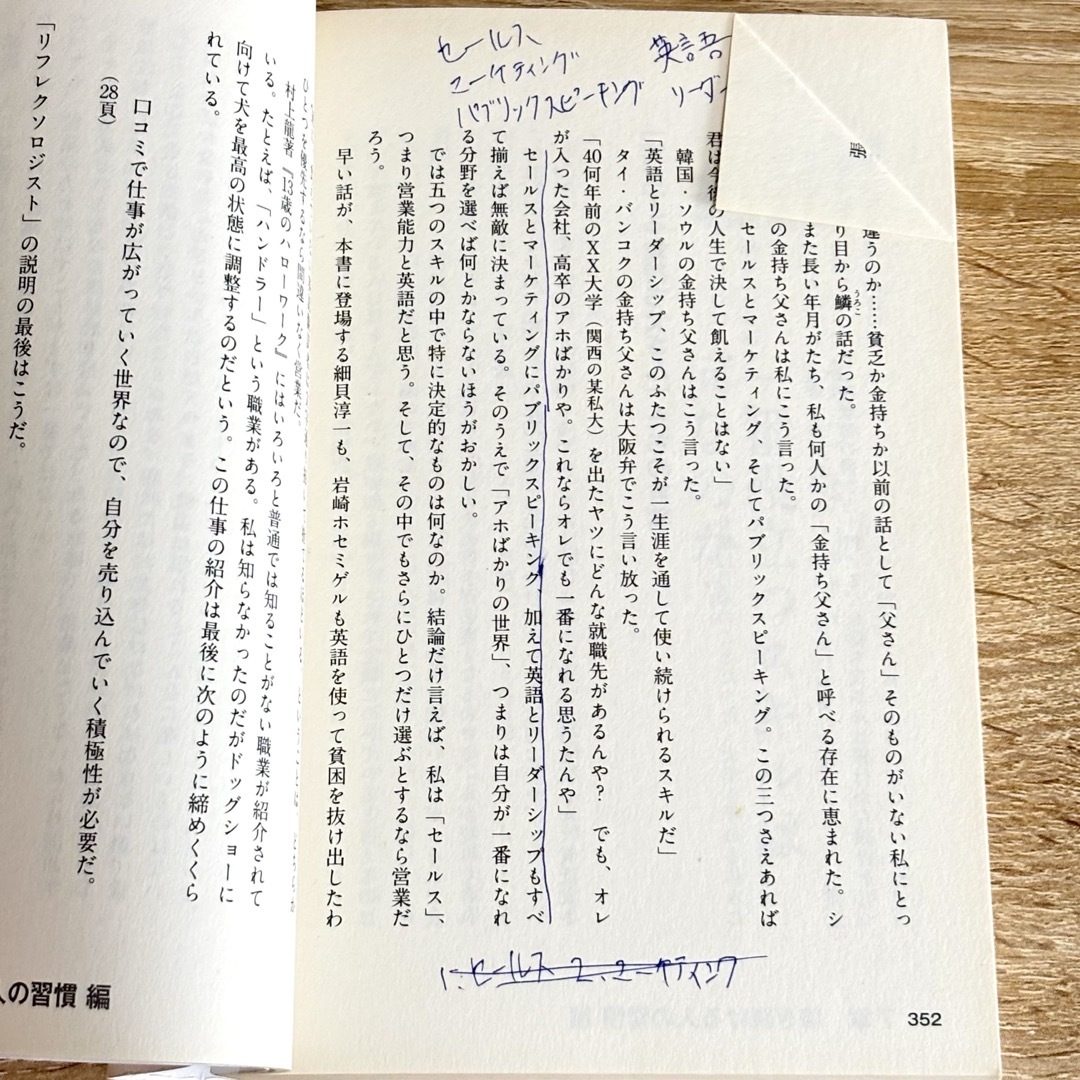 セールス
マーケティング
パブリックスピーキング
英語
リーダー
違うのか……貧乏か金持ちか以前の話として「父さん」そのものがいない私にとっ
り目から鱗の話だった。
うろこ
また長い年月がたち、私も何人かの「金持ち父さん」と呼べる存在に恵まれた。シ
の金持ち父さんは私にこう言った。
セールスとマーケティング、そしてパブリックスピーキング。この三つさえあれば
君は今後の人生で決して飢えることはない」
韓国・ソウルの金持ち父さんはこう言った。
「英語とリーダーシップ、このふたつこそが一生涯を通して使い続けられるスキルだ」
タイ・バンコクの金持ち父さんは大阪弁でこう言い放った。
「40何年前のXX大学（関西の某私大）を出たヤツにどんな就職先があるんや? でも、オレ
が入った会社、高卒のアホばかりや。これならオレでも一番になれる思うたんや」
セールスとマーケティングにパブリックスピーキング、加えて英語とリーダーシップもすべ
て揃えば無敵に決まっている。そのうえで「アホばかりの世界」、つまりは自分が一番になれ
る分野を選べば何とかならないほうがおかしい。
では五つのスキルの中で特に決定的なものは何なのか。結論だけ言えば、私は「セールス」、
つまり営業能力と英語だと思う。そして、その中でもさらにひとつだけ選ぶとするなら営業だ
ろう。
早い話が、本書に登場する細貝淳一も、岩崎ホセミゲルも英語を使って貧困を抜け出したわ
1.セールス 2.マーケティング
352
ひとつを優先するなら間違いなく営業だ。
村上龍著『13歳のハローワーク』にはいろいろと普通では知ることがない職業が紹介されて
いる。たとえば、「ハンドラー」という職業がある。私は知らなかったのだがドッグショーに
向けて犬を最高の状態に調整するのだという。この仕事の紹介は最後に次のように締めくくら
れている。
口コミで仕事が広がっていく世界なので、自分を売り込んでいく積極性が必要だ。
（28頁）
「リフレクソロジスト」の説明の最後はこうだ。
人の習慣 編